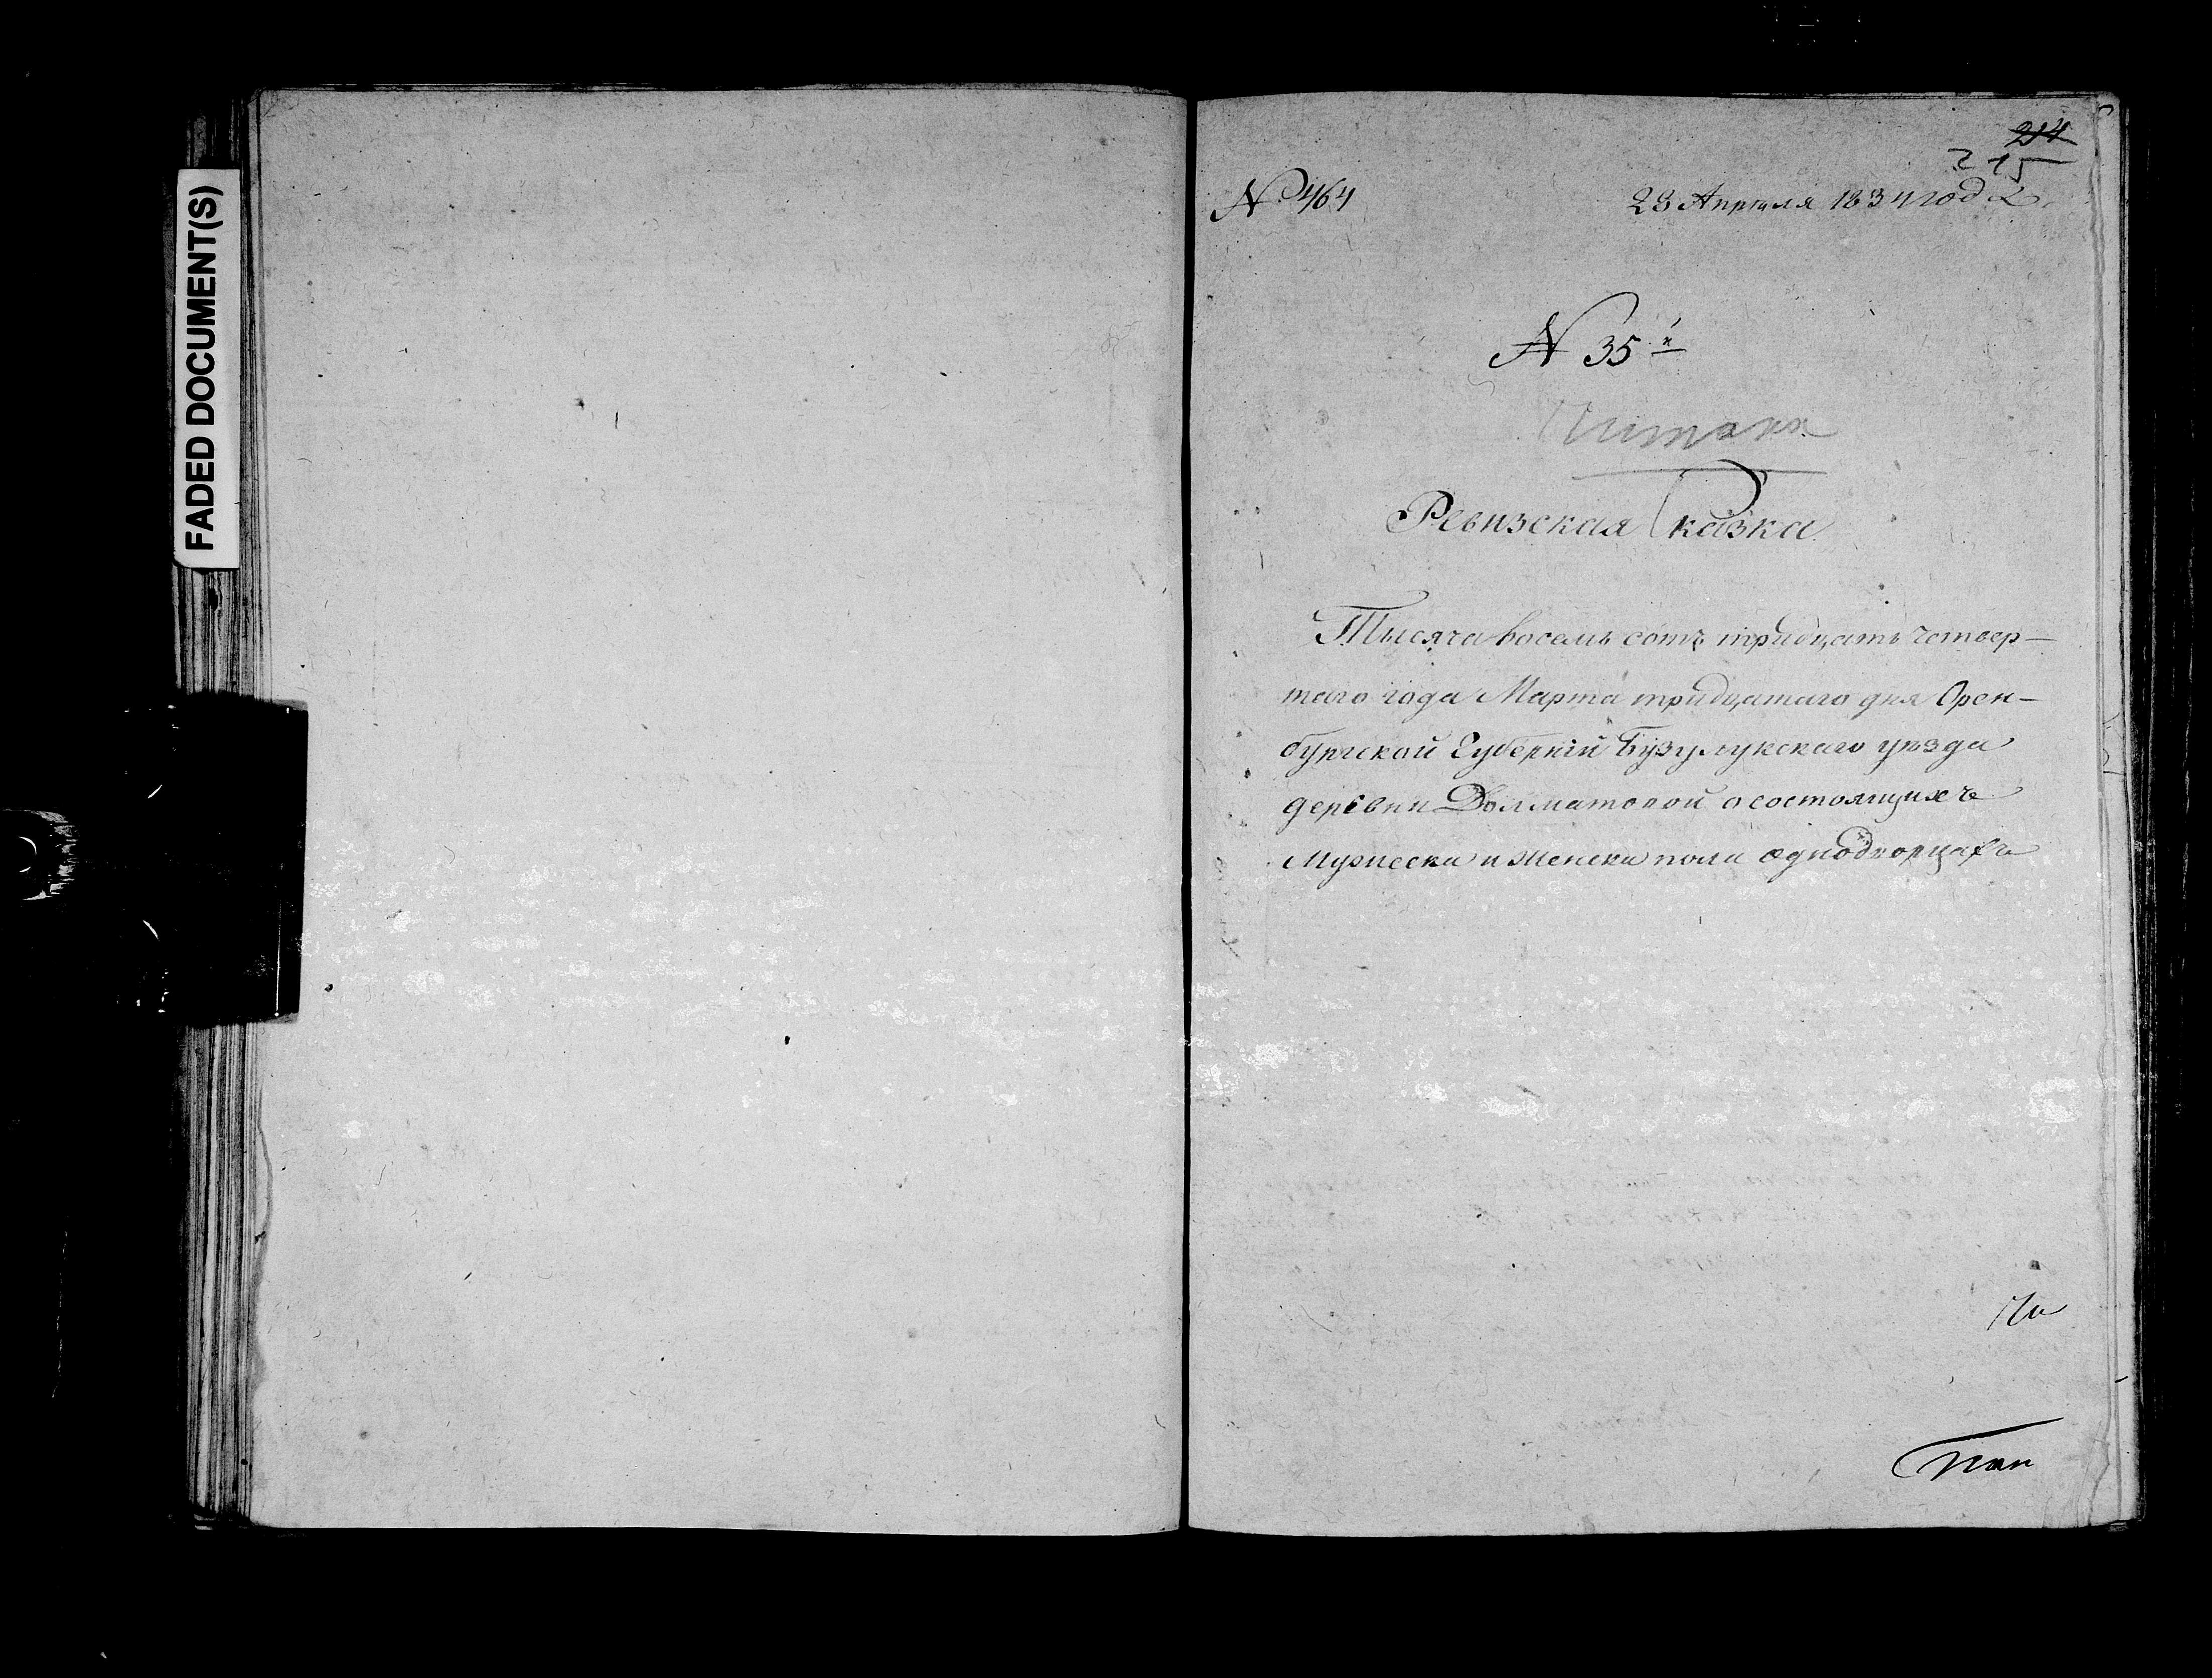 FADED DOCUMENT(S)
214
215
№ 464
23 Апреля 1834 года
N 35й
Читана
Ревизская Сказка
Тысяча восемь сотъ тридцать четвер-
таго года Марта тридцатаго дня Орен-
бургской Губерніи Бузулукскаго уезда
деревни Долматовой о состоящихъ
Мужеска и Женска пола однодворцахъ